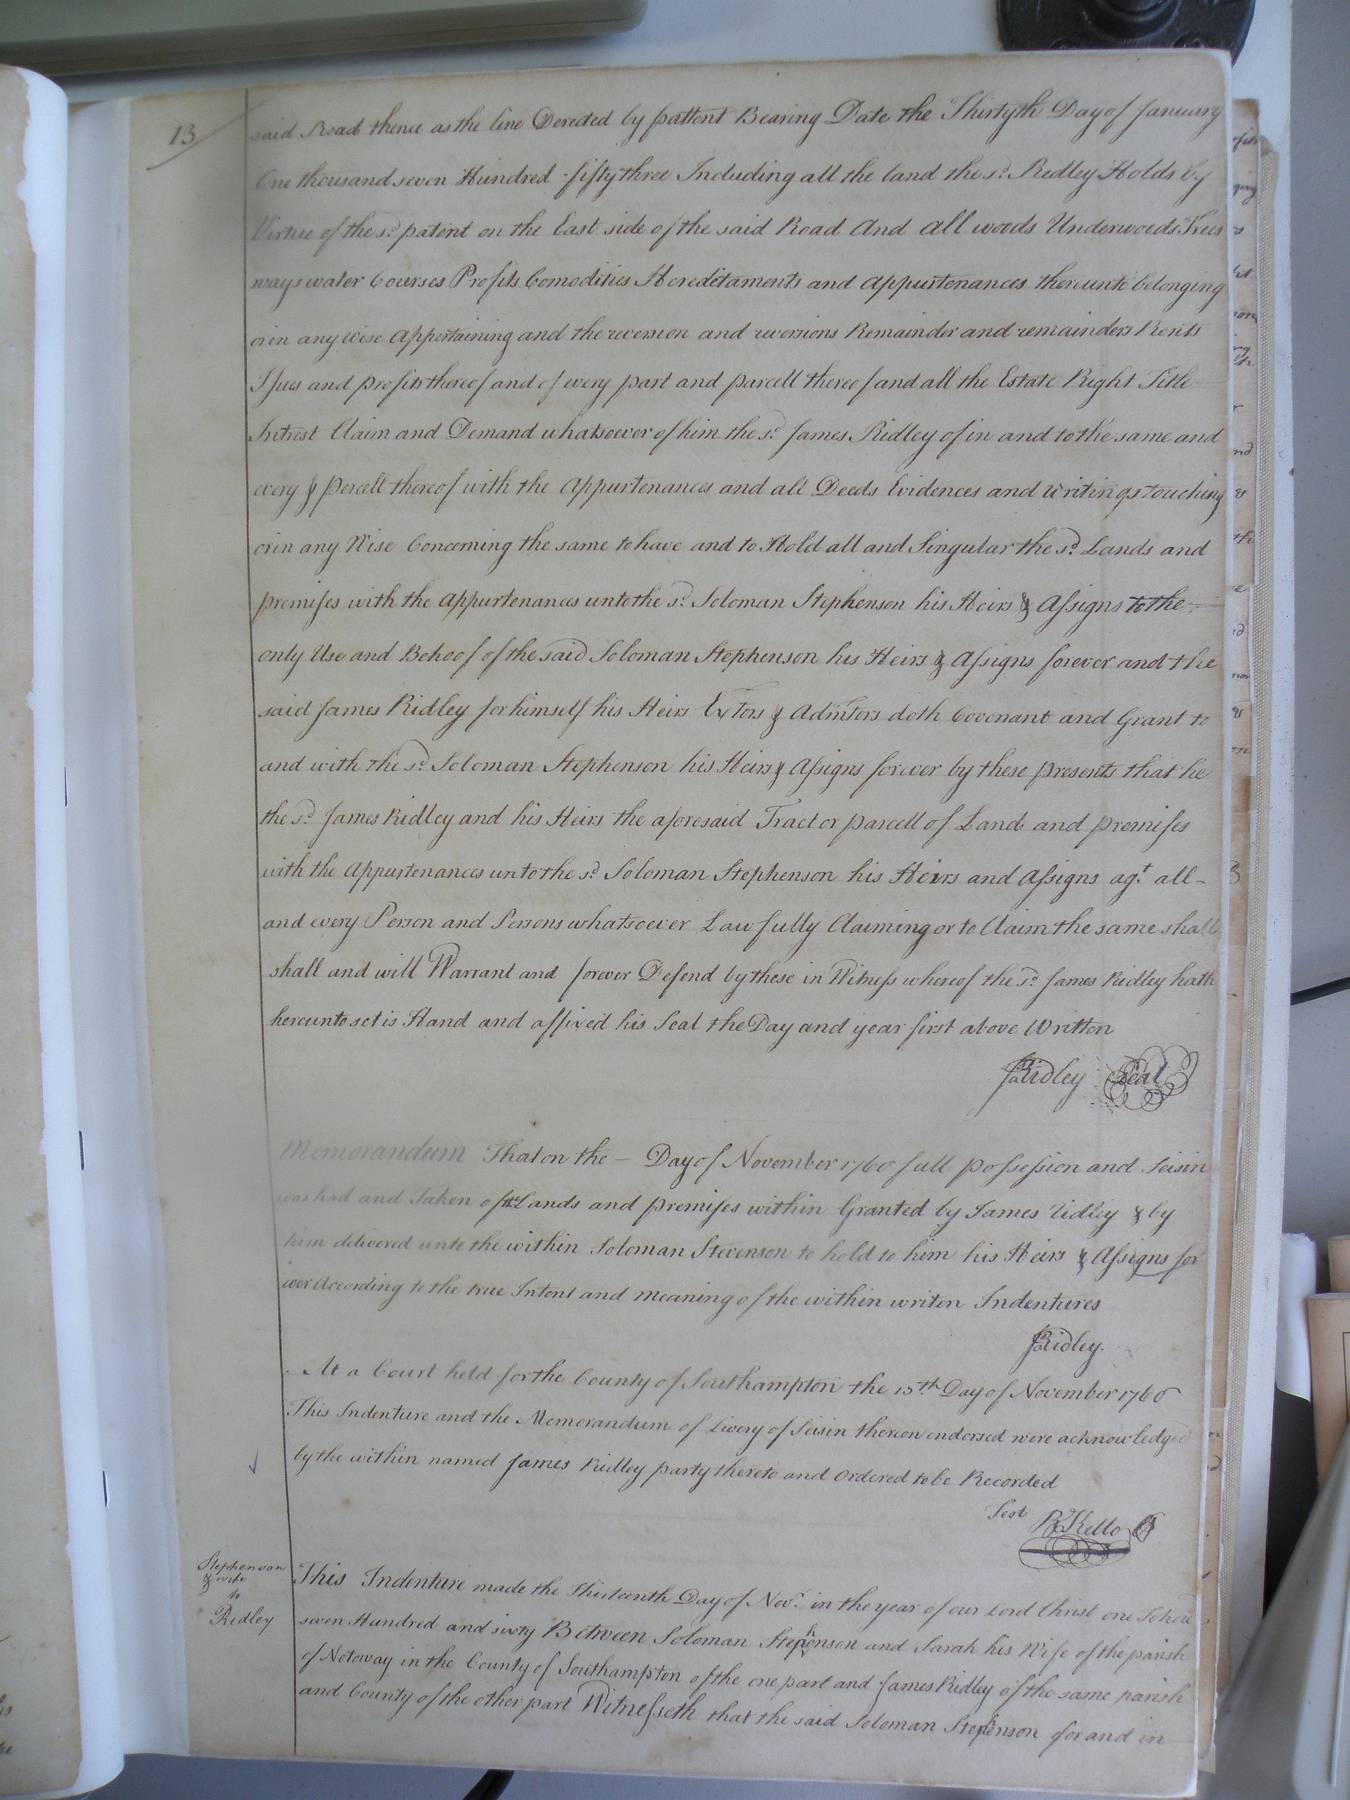 13
said Road thence as the line Derected by pattent Bearing Date the Thirtyth Day of January
One thousand seven Hundred fifty three Including all the land the sd. Ridley Holds by
Virtue of the sd. patent on the East side of the said Road And all woods Underwoods Trees
ways water Courses Profits Comodities Hereditaments and appurtenances thereunto belonging
or in any wise Appertaining and the reversion and reversions Remainder and remainders Rents
Issues and profits thereof and of every part and parcell thereof and all the Estate Right Title
Intrest Claim and Demand whatsoever of him the sd. James Ridley of in and to the same and
every & percell thereof with the Appurtenances and all Deeds Evidences and writings touching
or in any Wise Concerning the same to have and to Hold all and Singular the sd. Lands and
premises with the appurtenances unto the sd. Soloman Stephenson his Heirs & Assigns to the
only Use and Behoof of the said Soloman Stephenson his Heirs & Assigns forever and the
said James Ridley for himself his Heirs Extors & Admtors doth Covenant and Grant to
and with the sd. Soloman Stephenson his Heirs & Assigns forever by these presents that he
the sd. James Ridley and his Heirs the aforesaid Tract or parcell of Land and premises
with the Appurtenances unto the sd. Soloman Stephenson his Heirs and Assigns agt. all
and every Person and Persons whatsoever Lawfully Claiming or to Claim the same shall
shall and will Warrant and forever Defend by these in Witness whereof the sd. James Ridley hath
hereunto set is Hand and affixed his Seal the Day and year first above Written
Jas Ridley Seal
Memorandum That on the — Day of November 1760 full possession and Seisin
was had and Taken of the Lands and premises within Granted by James Ridley & by
him delivered unto the within Soloman Stevenson to hold to him his Heirs & Assigns for
ever According to the true Intent and meaning of the within writen Indentures
Jas Ridley.
At a Court held for the County of Southampton the 13th Day of November 1760
This Indenture and the Memorandum of Livery of Seisin thereon endorsed were acknowledged
by the within named James Ridley party thereto and Ordered to be Recorded
Test Rd Kello
Stephenson
& wife
to
Ridley
This Indenture made the Thirteenth Day of Novr. in the year of our Lord Christ one Thou
seven Hundred and sixty Between Soloman Stephenson and Sarah his Wife of the parish
of Notoway in the County of Southampton of the one part and James Ridley of the same parish
and County of the other part Witnesseth that the said Soloman Stephenson for and in